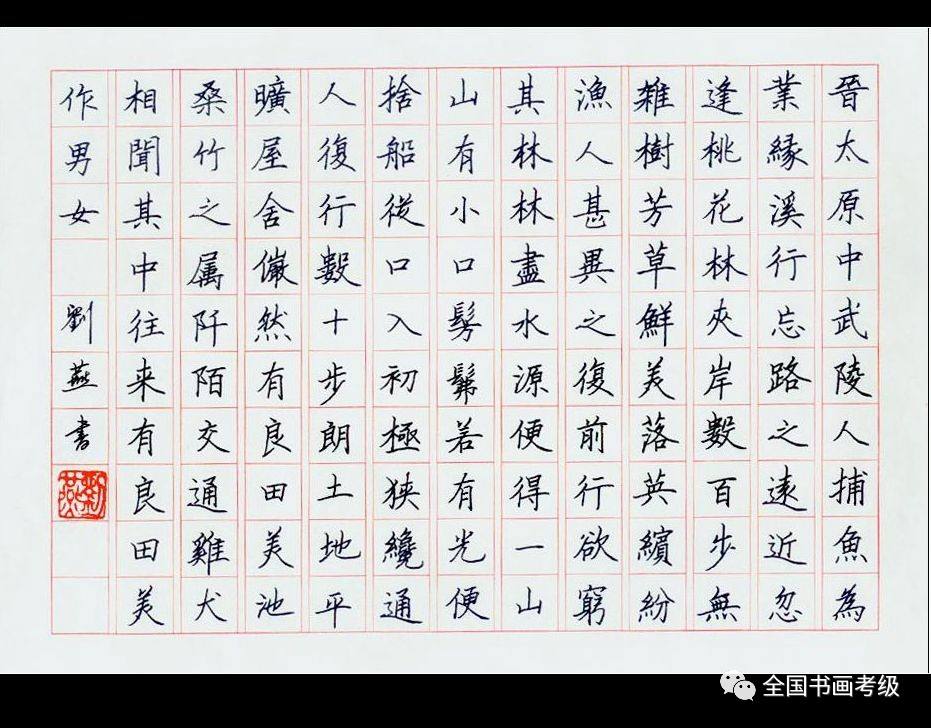 晉太原中武陵人捕魚為
業緣溪行忘路之遠近忽
逢桃花林夾岸數百步無
雜樹芳草鮮美落英繽紛
漁人甚異之復前行欲窮
其林林盡水源便得一山
山有小口髣髴若有光便
捨船從口入初極狹纔通
人復行數十步朗土地平
曠屋舍儼然有良田美池
桑竹之属阡陌交通雞犬
相聞其中往来有良田美
作男女 劉燕書
劉燕
全国书画考级